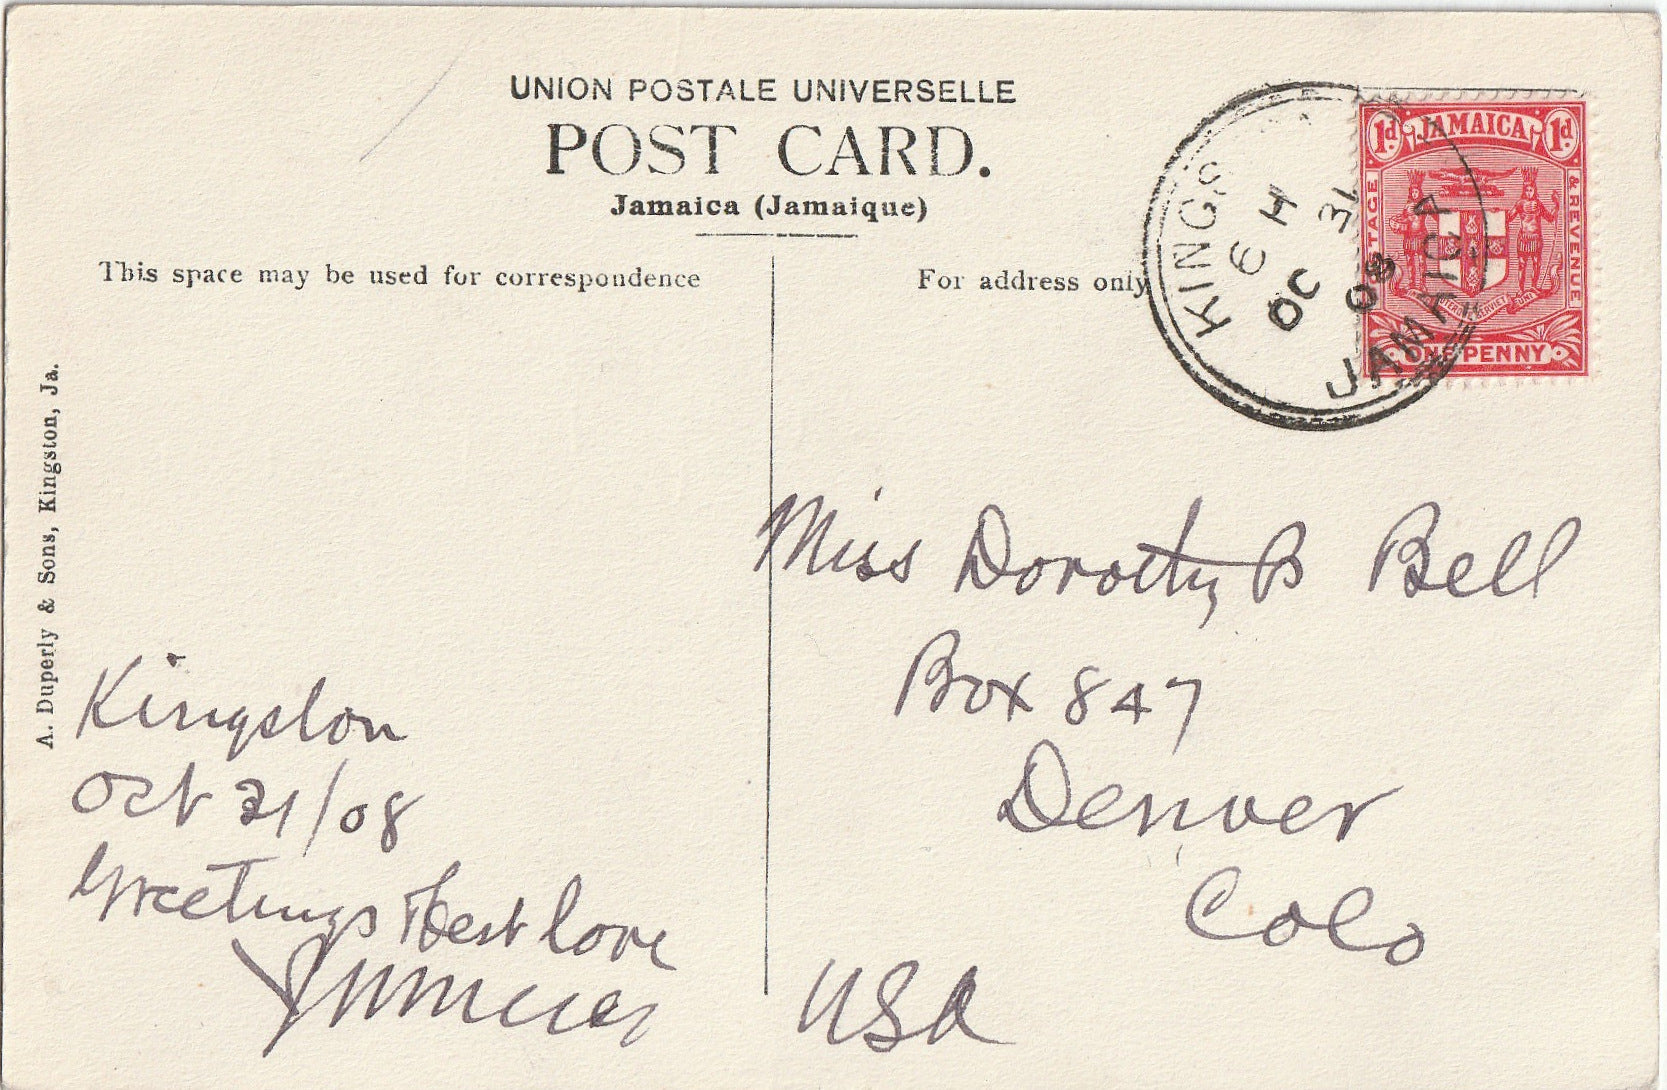 UNION POSTALE UNIVERSELLE
POST CARD.
Jamaica (Jamaique)
This space may be used for correspondence
For address only
A. Duperly & Sons, Kingston, Ja.
KINGS
H 9
31
OC
08
JAMAICA
1d JAMAICA 1d
POSTAGE & REVENUE
ONE PENNY
Miss Dorothy B Bell
Box 847
Denver
Colo
USA
Kingston
Oct 31/08
Greetings & best love